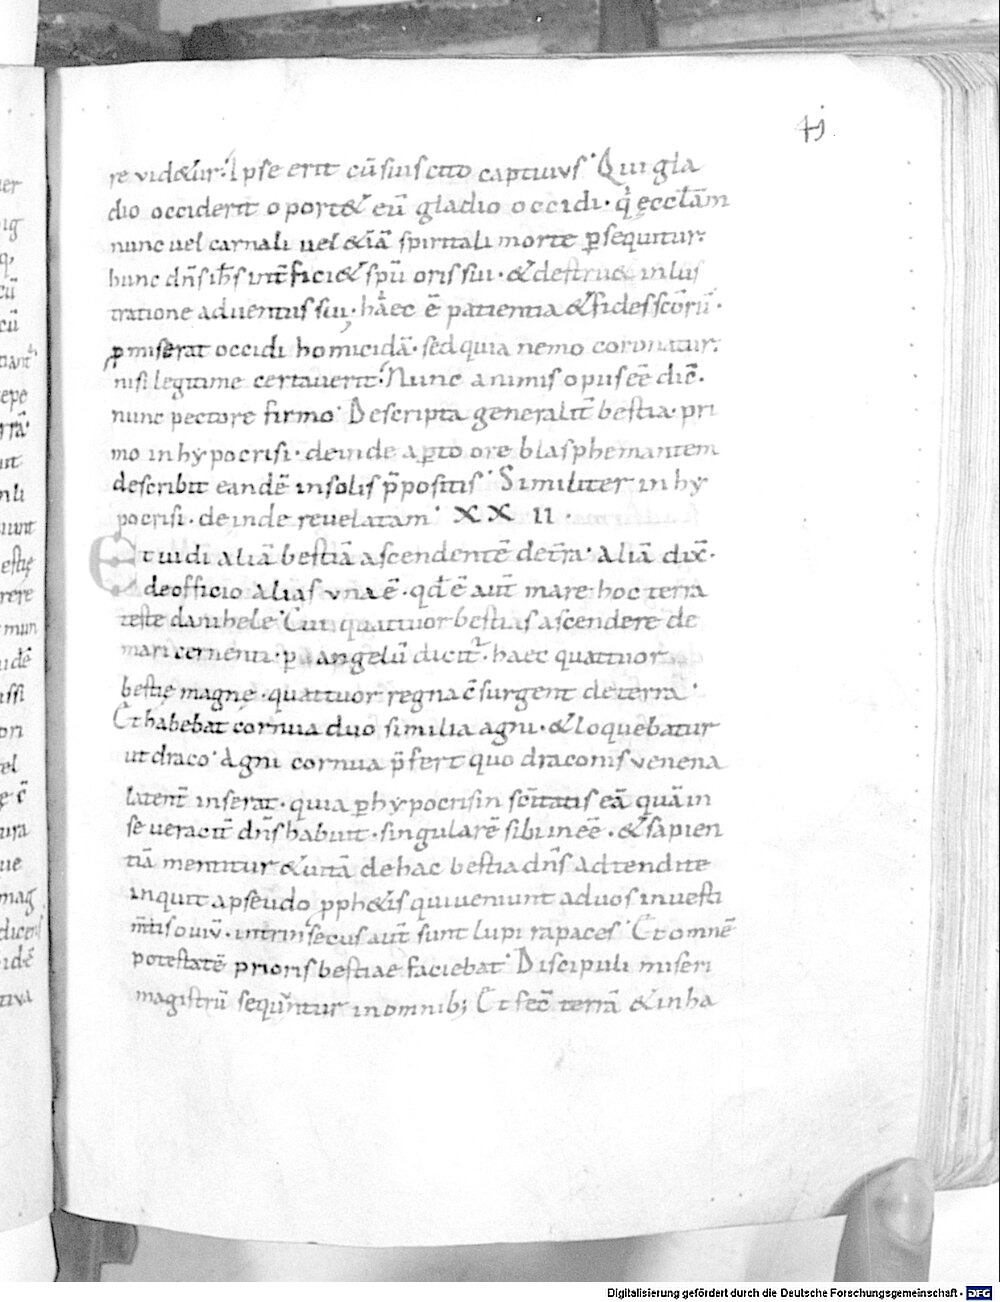 41
re vid&ur. Ipse erit cū suis cito captivus. Qui gla
dio occiderit oport& eū gladio occidi. q̇ ęccl̄am
nunc uel carnali uel &iā spiritali morte p̄sequitur.
hunc dn̄s ih̄s int̄fici& sp̄u oris sui. & destru& inlus
tratione aduentus sui. haec ē patientia & fides sc̄orū.
ꝓmiserat occidi homicidā. sed quia nemo coronatur.
nisi legitime certaverit. Nunc animis opus eē dic̄.
nunc pectore firmo. Descripta generalit̄ bestia. pri
mo in hypocrisi. deinde aꝑto ore blasphemantem
describit eandē in solis p̄positis. Similiter in hy
pocrisi. deinde revelatam. XXII.
Et uidi aliā bestiā ascendentē de t̄ra. aliā dix̄.
de officio alias una ē. qd̄ ē aut̄ mare hoc terra
teste danihele. Cui quattuor bestias ascendere de
mari cernenti. p angelū dicit̄. haec quattuor
bestię magnę. quattuor regna c̄surgent de terra.
Et habebat cornua duo similia agni. & loquebatur
ut draco. Agni cornua p̄fert quo draconis venena
latent̄ inserat. quia ꝑ hypocrisin sc̄itatis eā quā in
se veracit̄ dn̄s habuit. singularē sibi ineē. & sapien
tiā mentitur & uitā de hac bestia dn̄s adtendite
inquit a pseudo ꝓph&is qui veniunt ad uos in uesti
m̄tis oviū. intrinsecus aut̄ sunt lupi rapaces. Et omnē
potestatē prioris bestiae faciebat. Discipuli miseri
magistrū sequntur in omnib; Et fec̄ terrā & inha
Digitalisierung gefördert durch die Deutsche Forschungsgemeinschaft - DFG